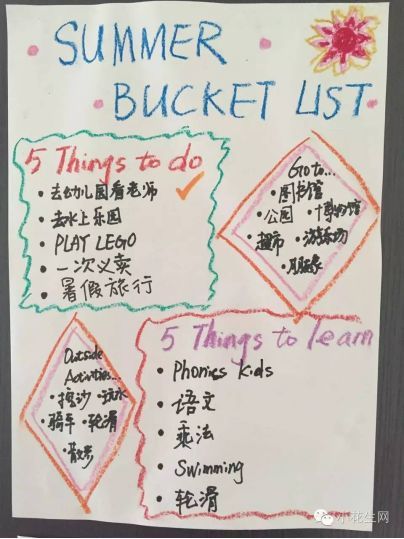 SUMMER
BUCKET LIST
5 Things to do
• 去幼儿园看老师
• 去水上乐园
• PLAY LEGO
• 一次义卖
• 暑假旅行
Go to...
• 图书馆
• 公园 • 博物馆
• 超市 • 游乐场
Outside
Activities...
• 挖沙 • 玩水
• 骑车 • 轮滑
• 散步
5 Things to learn
• Phonics kids
• 语文
• 乘法
• Swimming
• 轮滑
小花生网